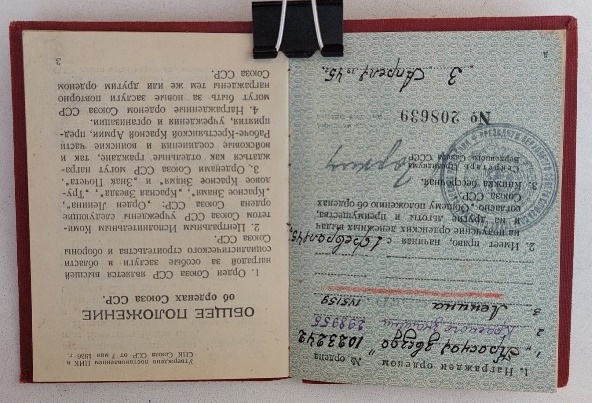 Утверждено постановлением ЦИК и
СНК Союза ССР от 7 мая 1936 г.
ОБЩЕЕ ПОЛОЖЕНИЕ
об орденах Союза ССР.
1. Орден Союза ССР является высшей
наградой за особые заслуги в области
социалистического строительства и обороны
Союза ССР.
2. Центральным Исполнительным Коми-
тетом Союза ССР учреждены следующие
ордена Союза ССР: „Орден Ленина",
„Красное Знамя", „Красная Звезда", „Тру-
довое Красное Знамя" и „Знак Почета".
3. Орденами Союза ССР могут награ-
ждаться как отдельные граждане, так и
войсковые соединения и воинские части
Рабоче-Крестьянской Красной Армии, пред-
приятия, учреждения и организации.
4. Награжденные орденом Союза ССР
могут быть за новые заслуги повторно
награждены тем же или другим орденом
Союза ССР.
3
1. Награжден орденом
№ ордена
1 „Красная звезда" 1023242
2 Красного знамени 298955
3 Ленина
2. Имеет право, начиная с 1 февраля 45,
на получение орденских денежных выдач
и на другие льготы и преимущества,
согласно „Общему положению об орденах
Союза ССР".
Книжка бессрочная.
Секретарь Президиума
Верховного Совета СССР
№ 208639
3 апреля 45 г.